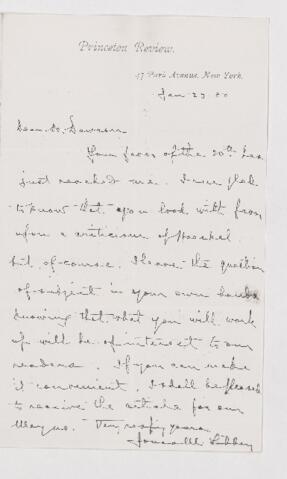 Princeton Review.
47 Park Avenue, New York.
Jan 23 80
Dear Dr. Dawson
Your favor of the 20th has
just reached me. I am glad
to know that you look with favor
upon a criticism of Haeckel
but of course I leave the question
of subject in your own hands
knowing that what you will work
up will be of interest to our
readers. If you can make
it convenient, I shall be pleased
to receive the article for our
Very resp'y yours
Libbey